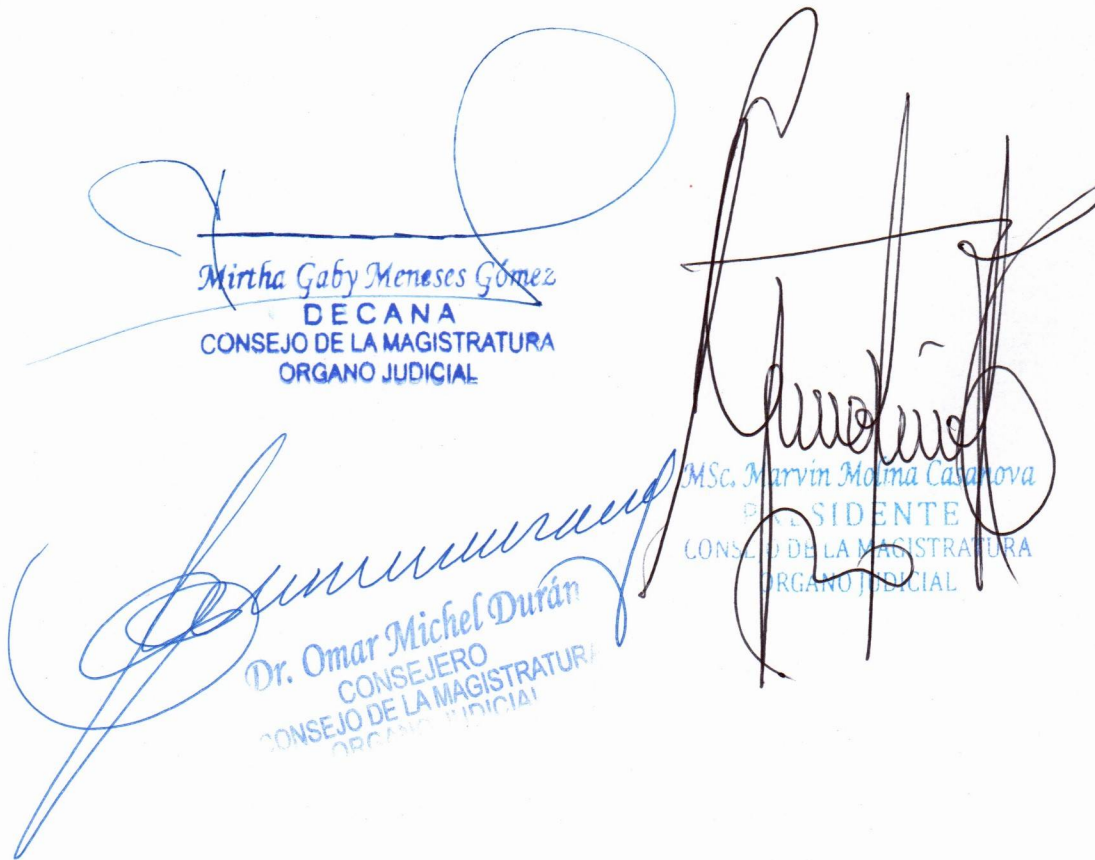 Mirtha Gaby Meneses Gómez
DECANA
CONSEJO DE LA MAGISTRATURA
ORGANO JUDICIAL
MSc. Marvin Molina Casanova
PRESIDENTE
CONSEJO DE LA MAGISTRATURA
ORGANO JUDICIAL
Dr. Omar Michel Durán
CONSEJERO
CONSEJO DE LA MAGISTRATURA
ORGANO JUDICIAL